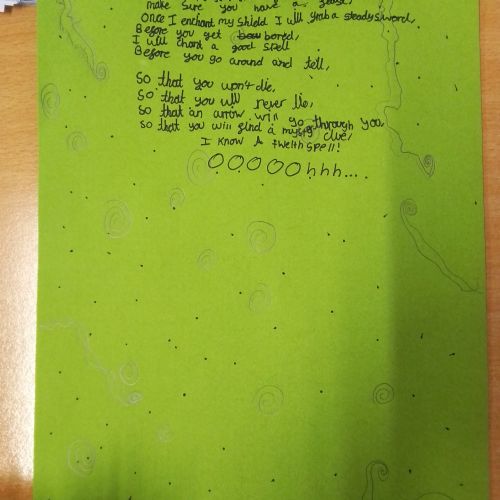 make sure you have a feast,
Once I enchant my shield I will grab a steady sword,
Before you get bored,
I will chant a good spell
Before you go around and tell,
So that you won't die,
So that you will never lie,
So that an arrow will go through you,
So that you will find a mystery clue,
I know a twelth spell!
OOOOOhhh...